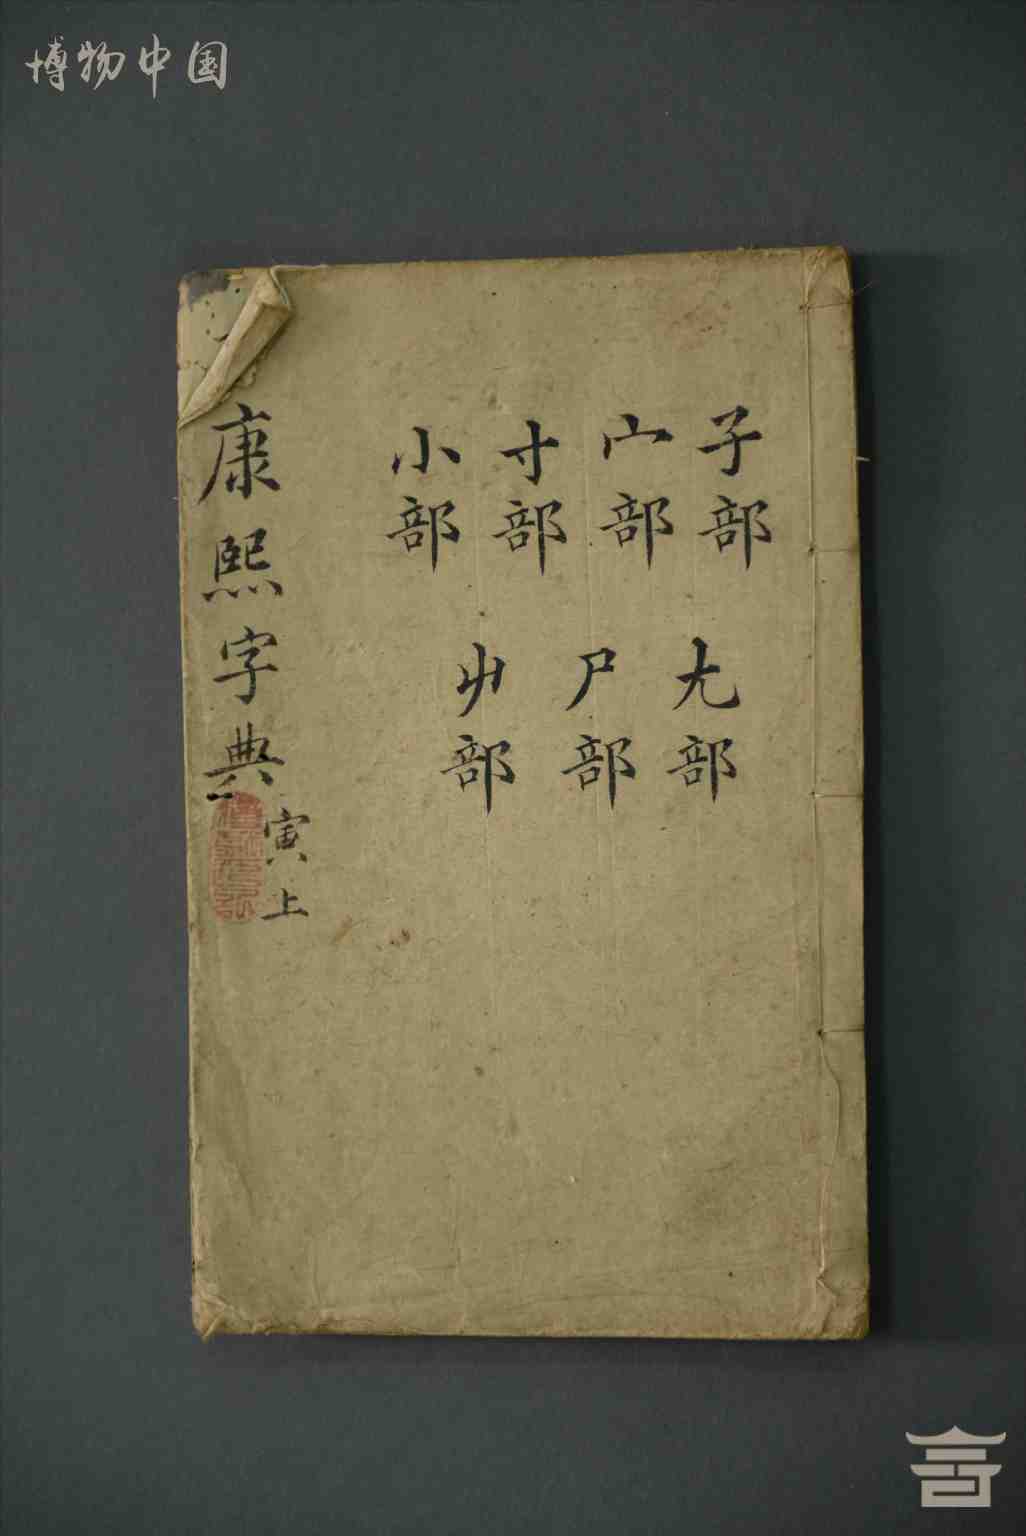 博物中国
子部
宀部
寸部
小部
尢部
尸部
屮部
康熙字典
寅上